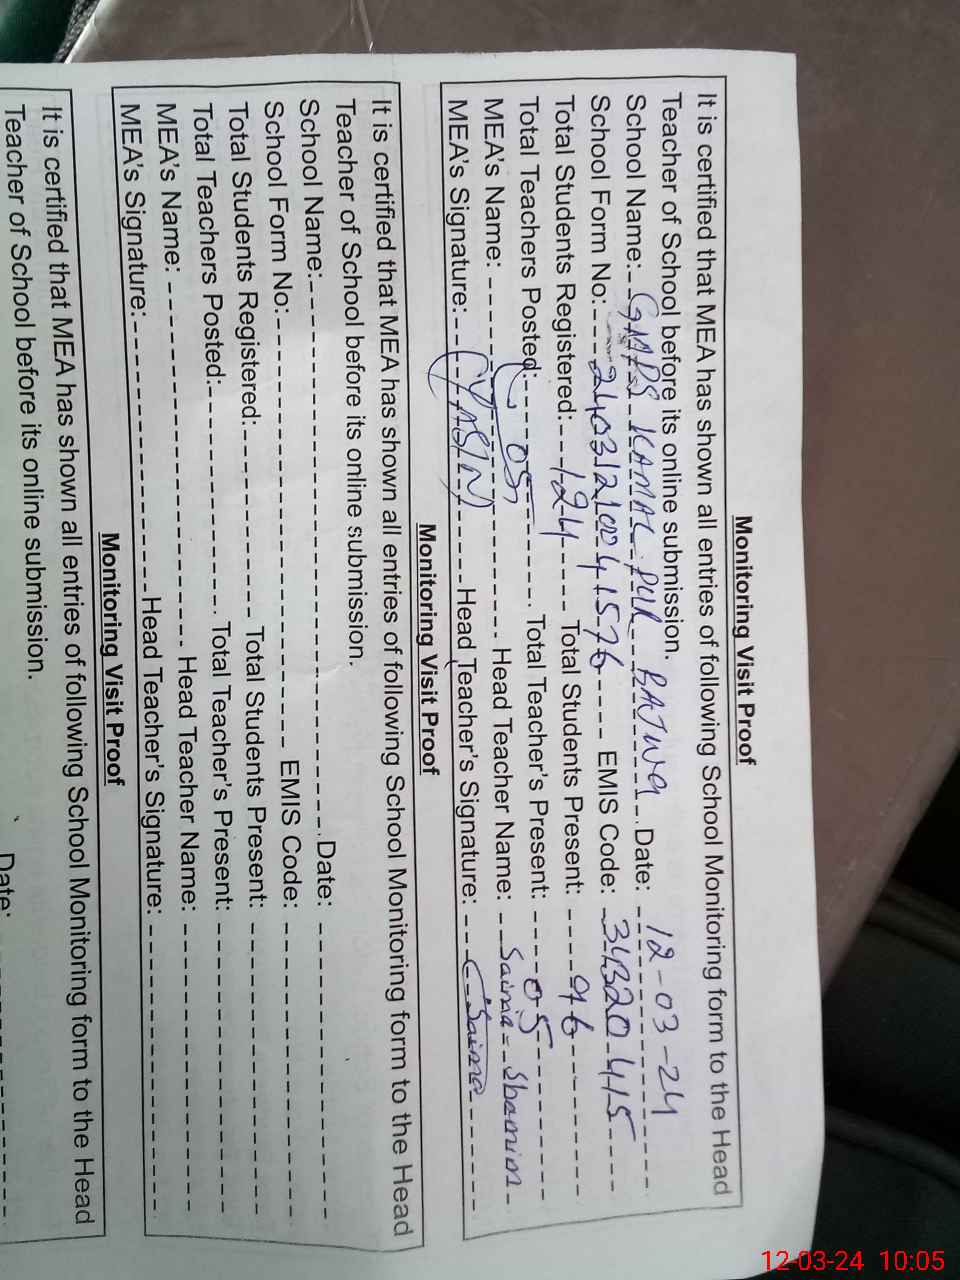 Monitoring Visit Proof
It is certified that MEA has shown all entries of following School Monitoring form to the Head
Teacher of School before its online submission.
School Name: GMPS KAMAL PUR BAJWA Date: 12-03-24
School Form No: 24031210041576 EMIS Code: 34320415
Total Students Registered: 124 Total Students Present: 96
Total Teachers Posted: 05 Total Teacher's Present: 05
MEA's Name: Head Teacher Name: Saima Shamim
MEA's Signature: (YASIN) Head Teacher's Signature: Saima
Monitoring Visit Proof
It is certified that MEA has shown all entries of following School Monitoring form to the Head
Teacher of School before its online submission.
School Name: Date:
School Form No: EMIS Code:
Total Students Registered: Total Students Present:
Total Teachers Posted: Total Teacher's Present:
MEA's Name: Head Teacher Name:
MEA's Signature: Head Teacher's Signature:
Monitoring Visit Proof
It is certified that MEA has shown all entries of following School Monitoring form to the Head
Teacher of School before its online submission.
Date:
12-03-24 10:05